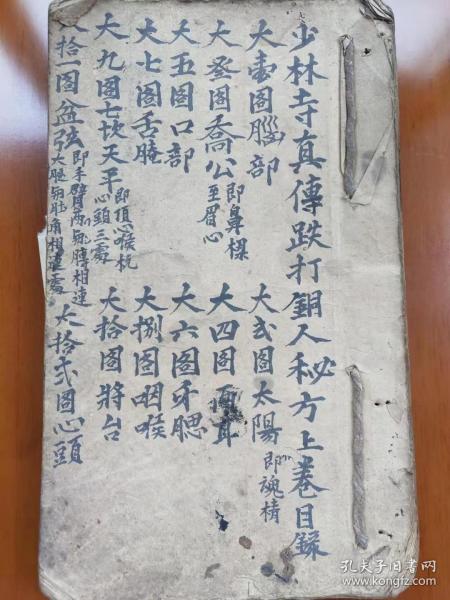 少林寺真傳跌打銅人秘方上卷目錄
大壹圖腦部 大弍圖太陽 即魂精
大叁圖喬公 即鼻樑至眉心 大四圖面耳
大五圖口部 大六圖牙腮
大七圖舌腌 大捌圖咽喉
大九圖七坎天平 即頂心喉杭心頭三處 大拾圖將台
大拾一圖盆弦 即手臂兩 膊相連 大腿 角相連處 大拾弍圖心頭
孔夫子旧书网
www.kongfz.com